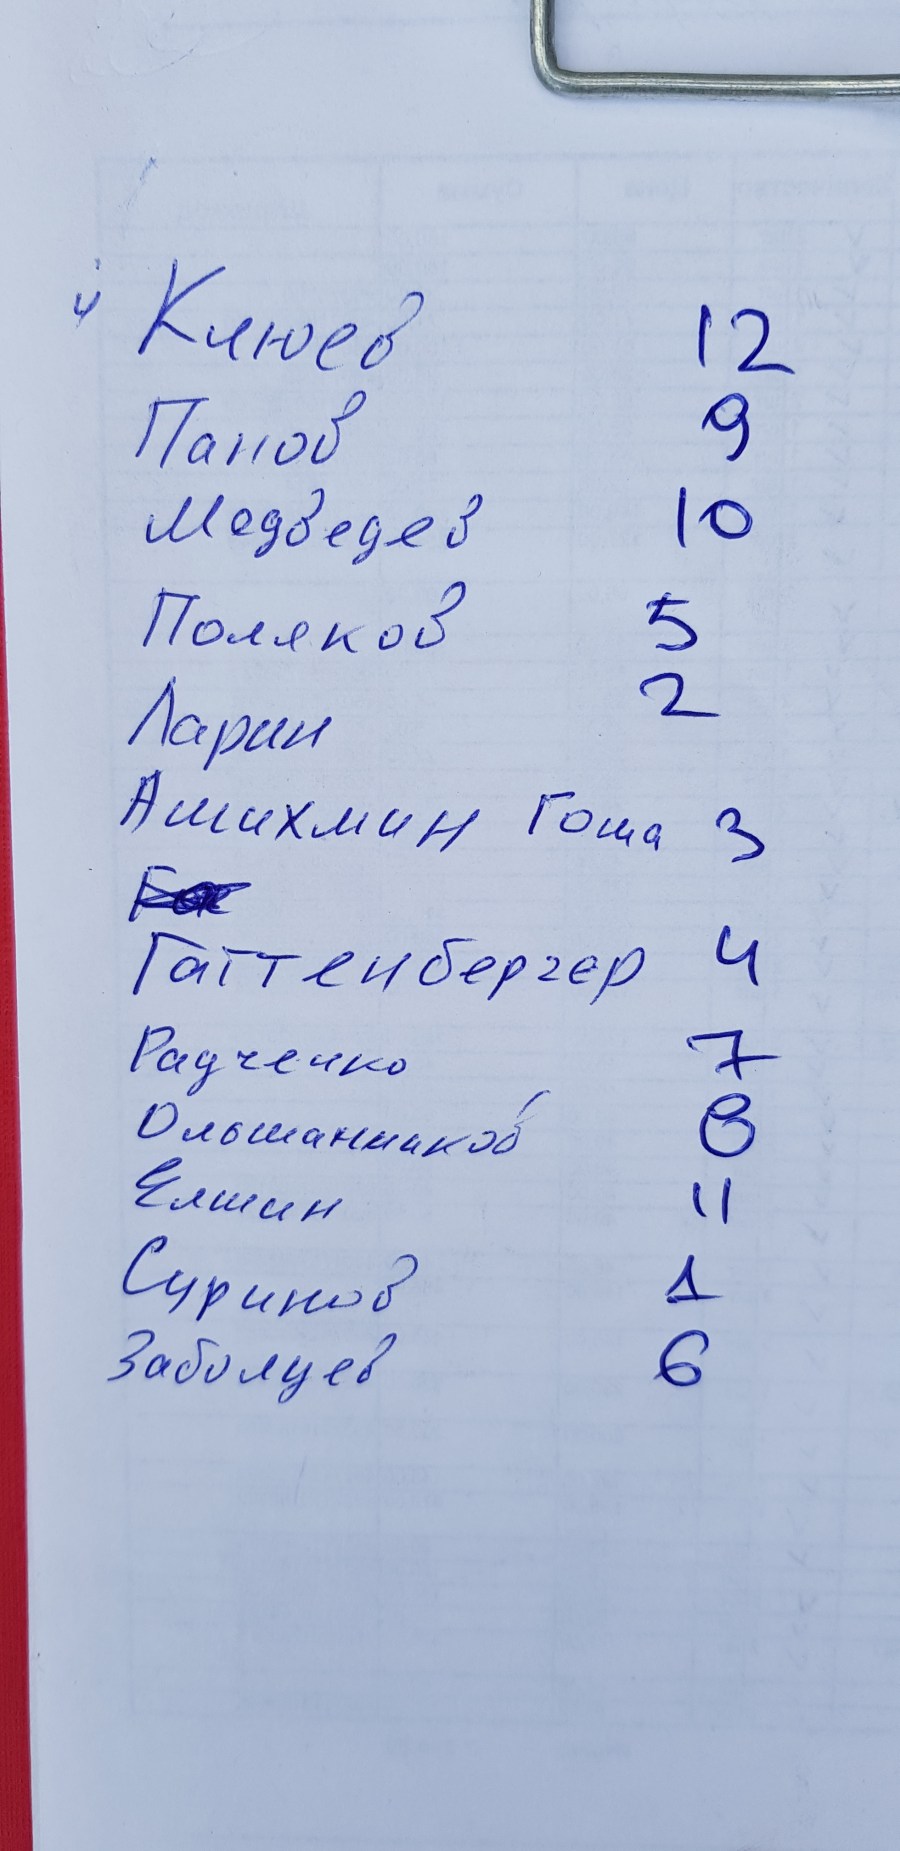 Клюев 12
Панов 9
Медведев 10
Поляков 5
Ларин 2
Ашихмин Гоша 3
Гаттенбергер 4
Радченко 7
Ольшанников 8
Елшин 11
Суринов 1
Заболцев 6